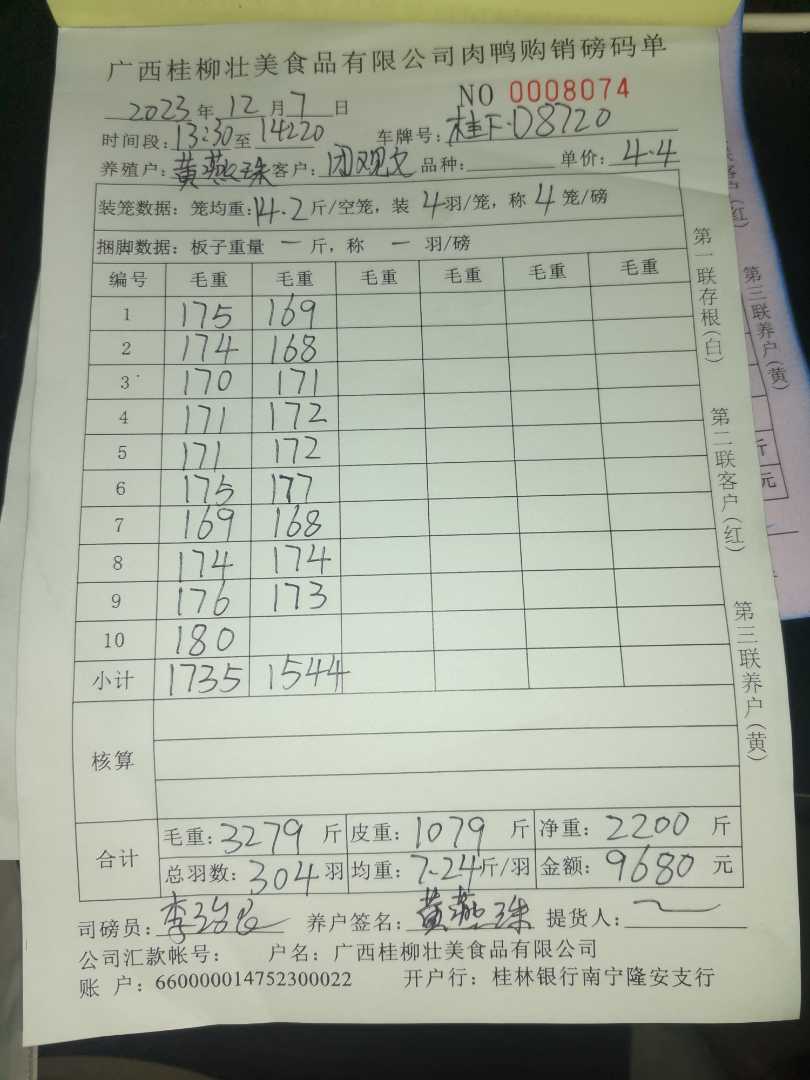 广西桂柳壮美食品有限公司肉鸭购销磅码单
NO 0008074
2023年12月7日
时间段:13:30至14:20 车牌号:桂F·D8720
养殖户:黄燕珠 客户: 品种: 单价:4.4
装笼数据:笼均重:14.2斤/空笼,装4羽/笼,称4笼/磅
捆脚数据:板子重量 一 斤,称 一 羽/磅
编号 毛重 毛重 毛重 毛重 毛重 毛重
1 175 169
2 174 168
3 170 171
4 171 172
5 171 172
6 175 177
7 169 168
8 174 174
9 176 173
10 180
小计 1735 1544
核算
合计 毛重:3279斤 皮重:1079斤 净重:2200斤
总羽数:304羽 均重:7.24斤/羽 金额:9680元
司磅员: 养户签名:黄燕珠 提货人:
公司汇款帐号: 户名:广西桂柳壮美食品有限公司
账 户:660000014752300022 开户行:桂林银行南宁隆安支行
第一联存根(白)
第二联客户(红)
第三联养户(黄)
(红)
第三联养户(黄)
斤
元